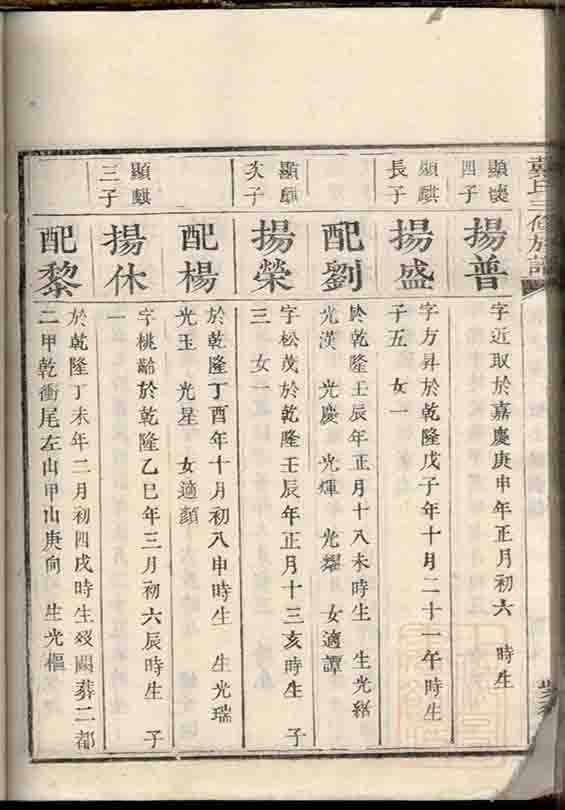 氏三修族譜
顯
四子
揚普
字近取於嘉慶庚申年正月初六 時生
顯麒
長子
揚盛
字方昇於乾隆戊子年十月二十一午時生
子五 女一
配劉
於乾隆壬辰年正月十八未時生 生光緒
光漢 光慶 光煇 光耀 女適譚
顯麒
次子
揚榮
字松茂於乾隆壬辰年正月十三亥時生 子
三 女一
配楊
於乾隆丁酉年十月初八申時生 生光瑞
光玉 光星 女適顏
顯麒
三子
揚休
字桃齡於乾隆乙巳年三月初六辰時生 子
一
配黎
於乾隆丁未年二月初四戌時生歿闕葬二都
二甲乾衝尾左山甲山庚向 生光樞